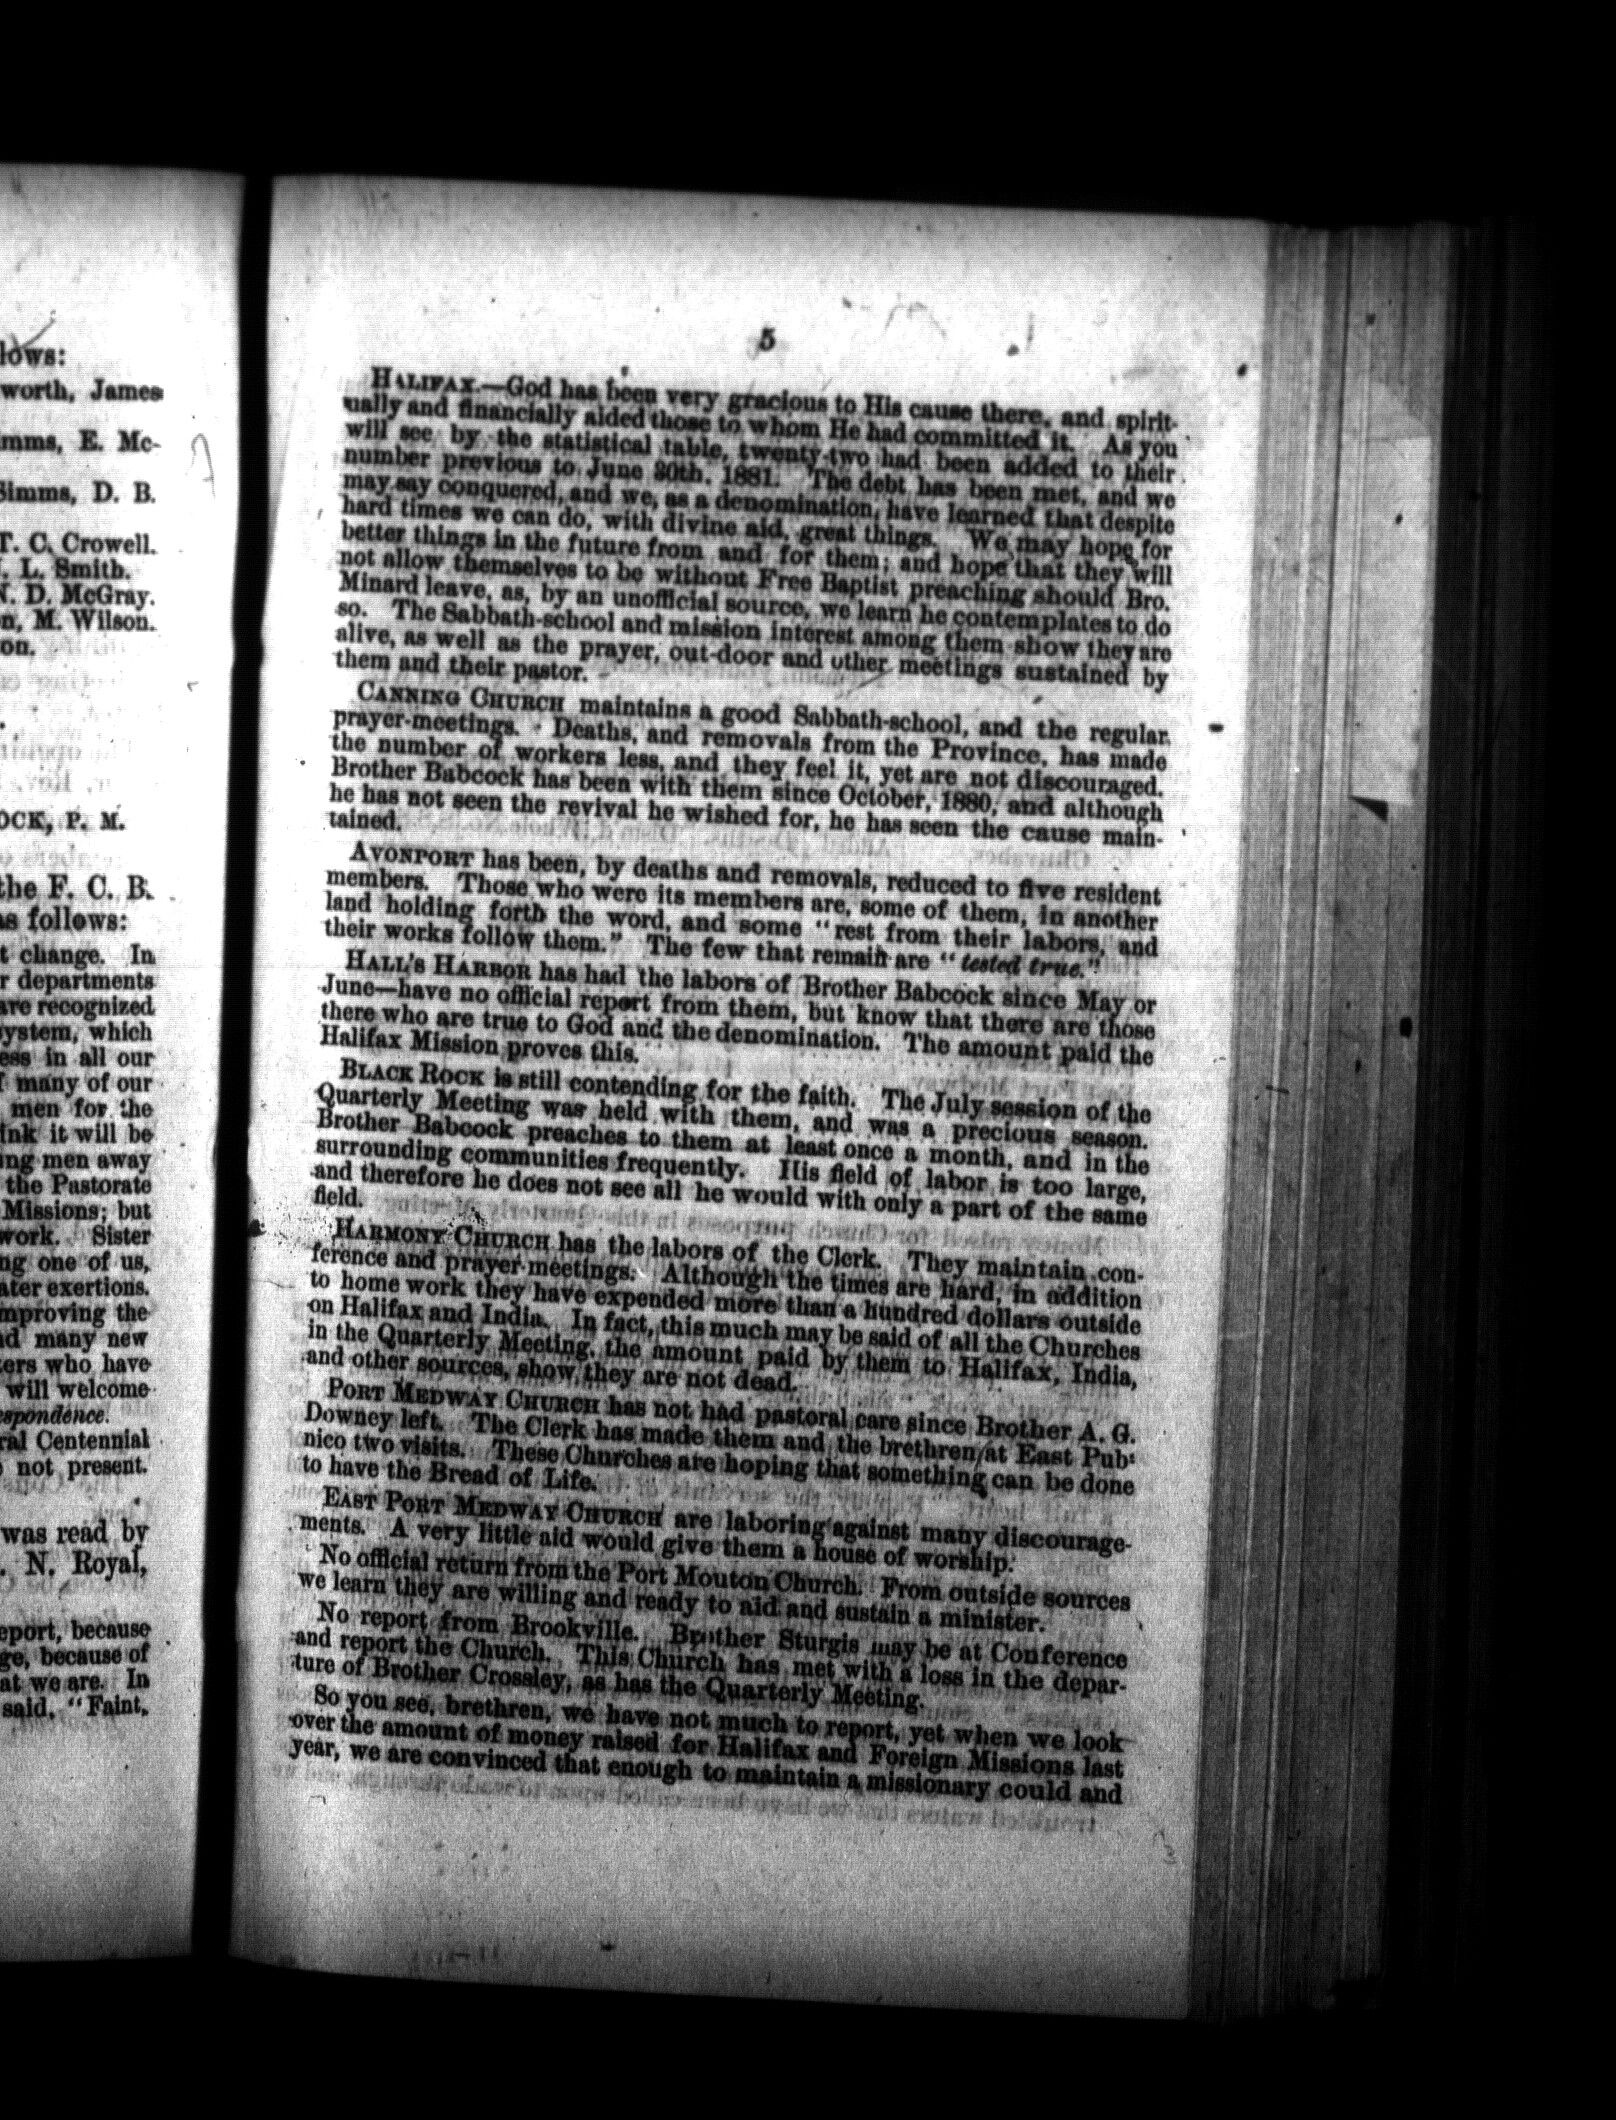 lows:
worth, James
imms, E. Mc-
Simms, D. B.
T. C. Crowell.
L. Smith.
N. D. McGray.
n, M. Wilson.
on.
OCK, P. M.
the F. C. B.
as follows:
t change. In
r departments
are recognized
system, which
ess in all our
f many of our
men for the
ink it will be
ung men away
the Pastorate
Missions; but
work. Sister
ng one of us,
ater exertions.
mproving the
nd many new
ters who have
will welcome
espondence.
ral Centennial
not present.
was read by
. N. Royal,
eport, because
ge, because of
at we are. In
said, "Faint,
5
HALIFAX.—God has been very gracious to His cause there, and spirit-
ually and financially aided those to whom He had committed it. As you
will see by the statistical table, twenty-two had been added to their
number previous to June 30th, 1881. The debt has been met, and we
may say conquered, and we, as a denomination, have learned that despite
hard times we can do, with divine aid, great things. We may hope for
better things in the future from and for them; and hope that they will
not allow themselves to be without Free Baptist preaching should Bro.
Minard leave, as, by an unofficial source, we learn he contemplates to do
so. The Sabbath-school and mission interest among them show they are
alive, as well as the prayer, out-door and other meetings sustained by
them and their pastor.
CANNING CHURCH maintains a good Sabbath-school, and the regular
prayer-meetings. Deaths, and removals from the Province, has made
the number of workers less, and they feel it, yet are not discouraged.
Brother Babcock has been with them since October, 1880, and although
he has not seen the revival he wished for, he has seen the cause main-
tained.
AVONPORT has been, by deaths and removals, reduced to five resident
members. Those who were its members are, some of them, in another
land holding forth the word, and some "rest from their labors, and
their works follow them." The few that remain are "tested true."
HALL'S HARBOR has had the labors of Brother Babcock since May or
June—have no official report from them, but know that there are those
there who are true to God and the denomination. The amount paid the
Halifax Mission proves this.
BLACK ROCK is still contending for the faith. The July session of the
Quarterly Meeting was held with them, and was a precious season.
Brother Babcock preaches to them at least once a month, and in the
surrounding communities frequently. His field of labor is too large,
and therefore he does not see all he would with only a part of the same
field.
HARMONY CHURCH has the labors of the Clerk. They maintain con-
ference and prayer-meetings. Although the times are hard, in addition
to home work they have expended more than a hundred dollars outside
on Halifax and India. In fact, this much may be said of all the Churches
in the Quarterly Meeting, the amount paid by them to Halifax, India,
and other sources, show they are not dead.
PORT MEDWAY CHURCH has not had pastoral care since Brother A. G.
Downey left. The Clerk has made them and the brethren at East Pub-
nico two visits. These Churches are hoping that something can be done
to have the Bread of Life.
EAST PORT MEDWAY CHURCH are laboring against many discourage-
ments. A very little aid would give them a house of worship.
No official return from the Port Mouton Church. From outside sources
we learn they are willing and ready to aid and sustain a minister.
No report from Brookville. Brother Sturgis may be at Conference
and report the Church. This Church has met with a loss in the depar-
ture of Brother Crossley, as has the Quarterly Meeting.
So you see, brethren, we have not much to report, yet when we look
over the amount of money raised for Halifax and Foreign Missions last
year, we are convinced that enough to maintain a missionary could and